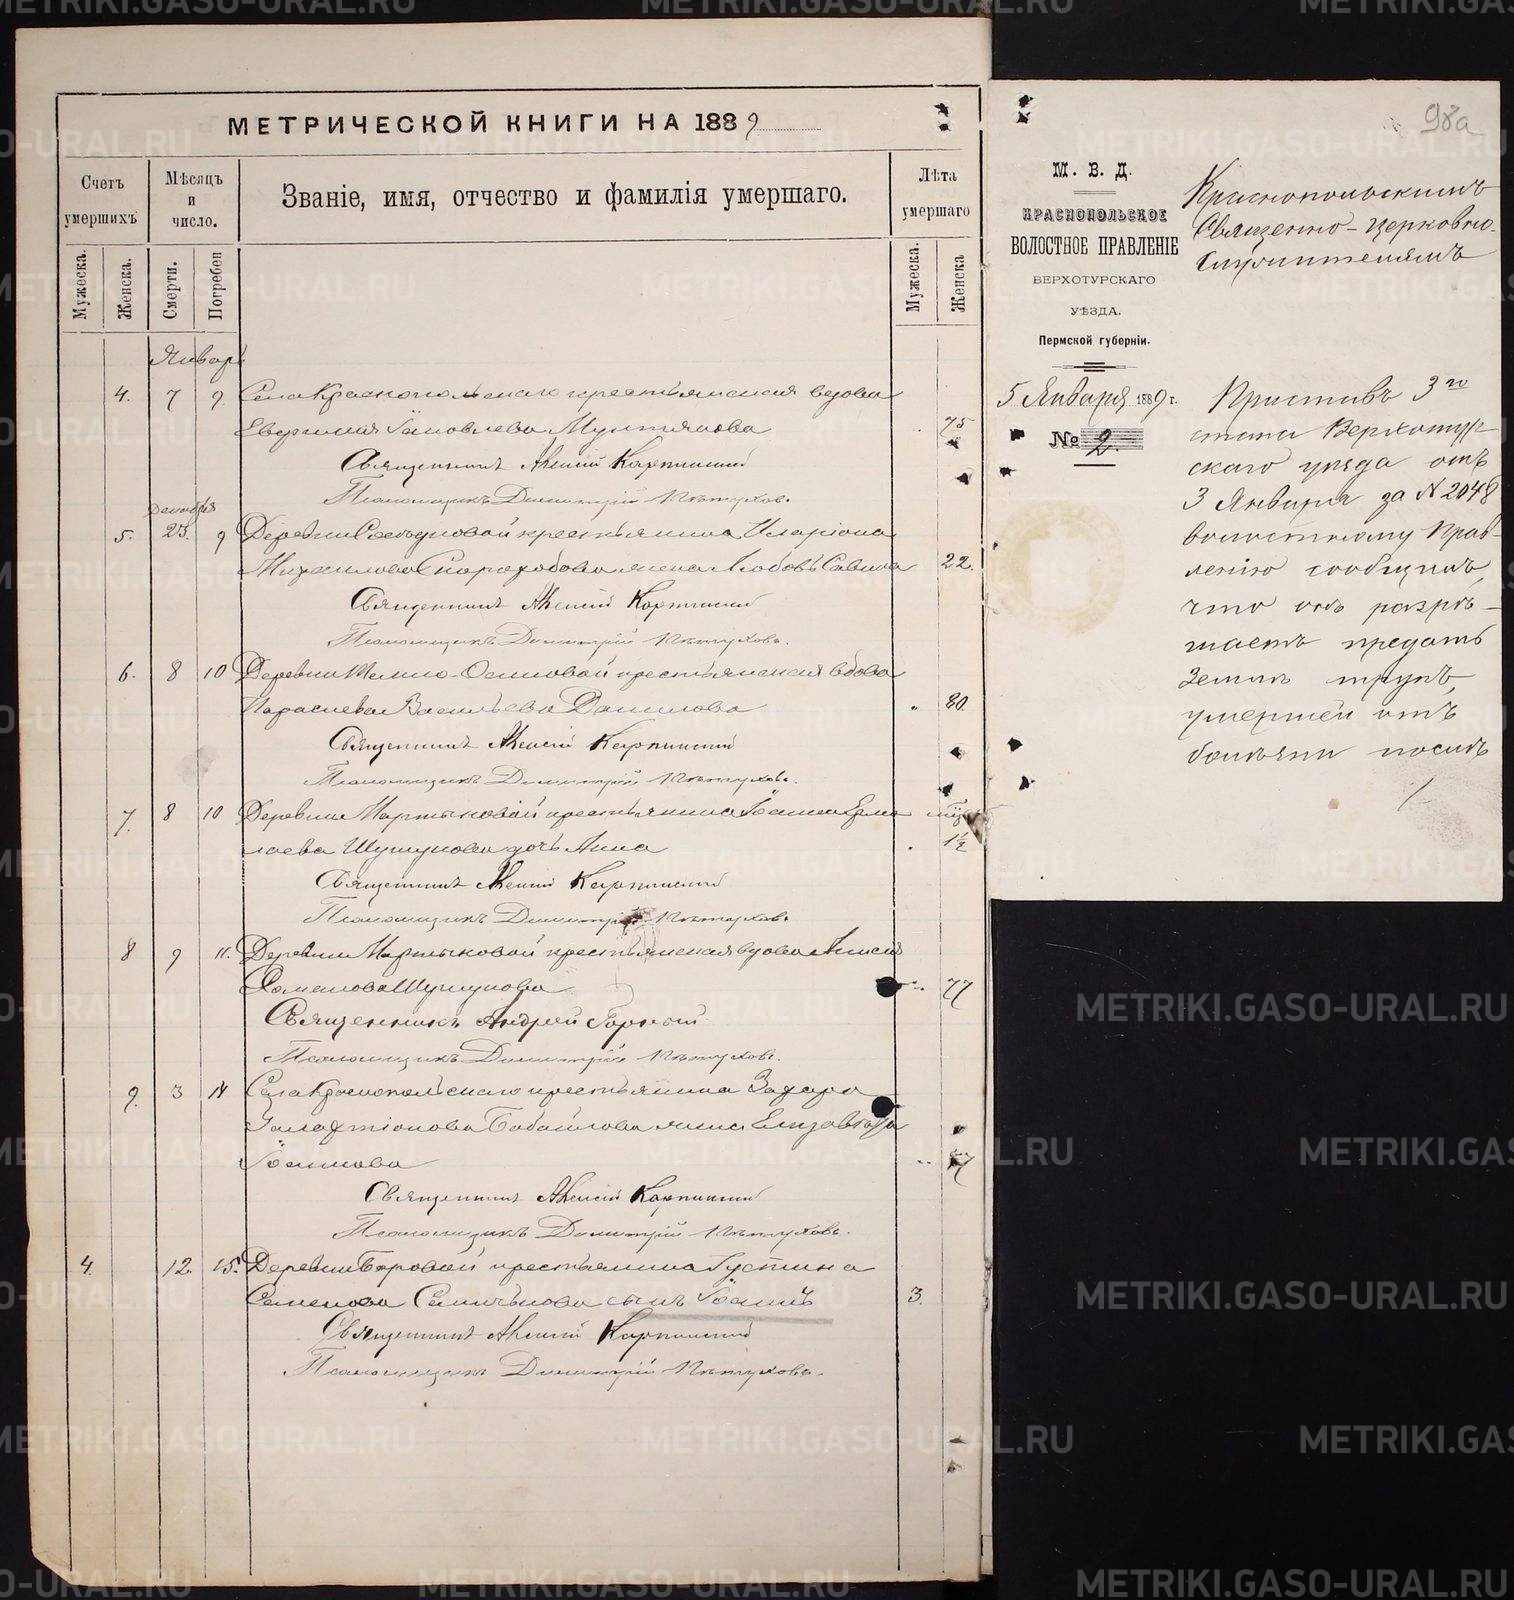 МЕТРИЧЕСКОЙ КНИГИ НА 1889
Счетъ умершихъ
Мѣсяцъ и число.
Званіе, имя, отчество и фамилія умершаго.
Лѣта умершаго
Мужеска.
Женска.
Смерти.
Погребен
Мужеска.
Женска
Январь
4. 7 9. Села Краснопольскаго крестьянская вдова
Яковлева 75
Священникъ Алексій Карпинский
Псаломщикъ Димитрій Пѣтуховъ.
Декабря
5. 25. 9 Деревни крестьянина Иларіона
Михаилова Скоробова жена Любовь Савина 22.
Священникъ Алексій Карпинский
Псаломщикъ Димитрій Пѣтуховъ.
6. 8 10 Деревни крестьянская вдова
Параскева Васильева Данилова 80.
Священникъ Алексій Карпинский
Псаломщикъ Димитрій Пѣтуховъ.
7. 8 10 Деревни Мартыновой крестьянина Іоанна Ермо
лаева Шушунова дочь Анна 1½
Священникъ Алексій Карпинский
Псаломщикъ Димитрій Пѣтуховъ.
8 9 11. Деревни Мартыновой крестьянская вдова
Шушунова 77
Священникъ Андрей Горный
Псаломщикъ Димитрій Пѣтуховъ.
9. 3 14 Села Краснопольскаго крестьянина Захара
Галактіонова Бабайлова жена Елизавета
Іоаннова
Священникъ Алексій Карпинский
Псаломщикъ Димитрій Пѣтуховъ.
4. 12. 15. Деревни Боровой крестьянина Густина
Семенова сынъ Іоаннъ 3.
Священникъ Алексій Карпинский
Псаломщикъ Димитрій Пѣтуховъ.
98а
М. В. Д.
КРАСНОПОЛЬСКОЕ
ВОЛОСТНОЕ ПРАВЛЕНІЕ
ВЕРХОТУРСКАГО
УѢЗДА.
Пермской губерніи.
5 Января 1889 г.
№ 2.
Краснопольскимъ
Священно-церковно-
служителямъ
Приставъ 3го
стана Верхотур-
скаго уѣзда отъ
3 Января за № 2048
волостному Прав-
ленію сообщилъ,
что онъ разрѣ-
шаетъ предать
землѣ трупъ,
умершей отъ
болѣзни послѣ
METRIKI.GASO-URAL.RU